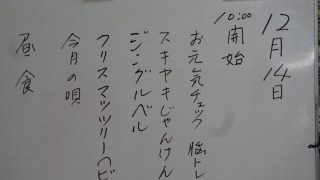 12月14日
10:00 開始
お元気チェック 脳トレ
スキヤキじゃんけん
ジングルベル
クリスマスツリー(ビ
今月の唄
昼食